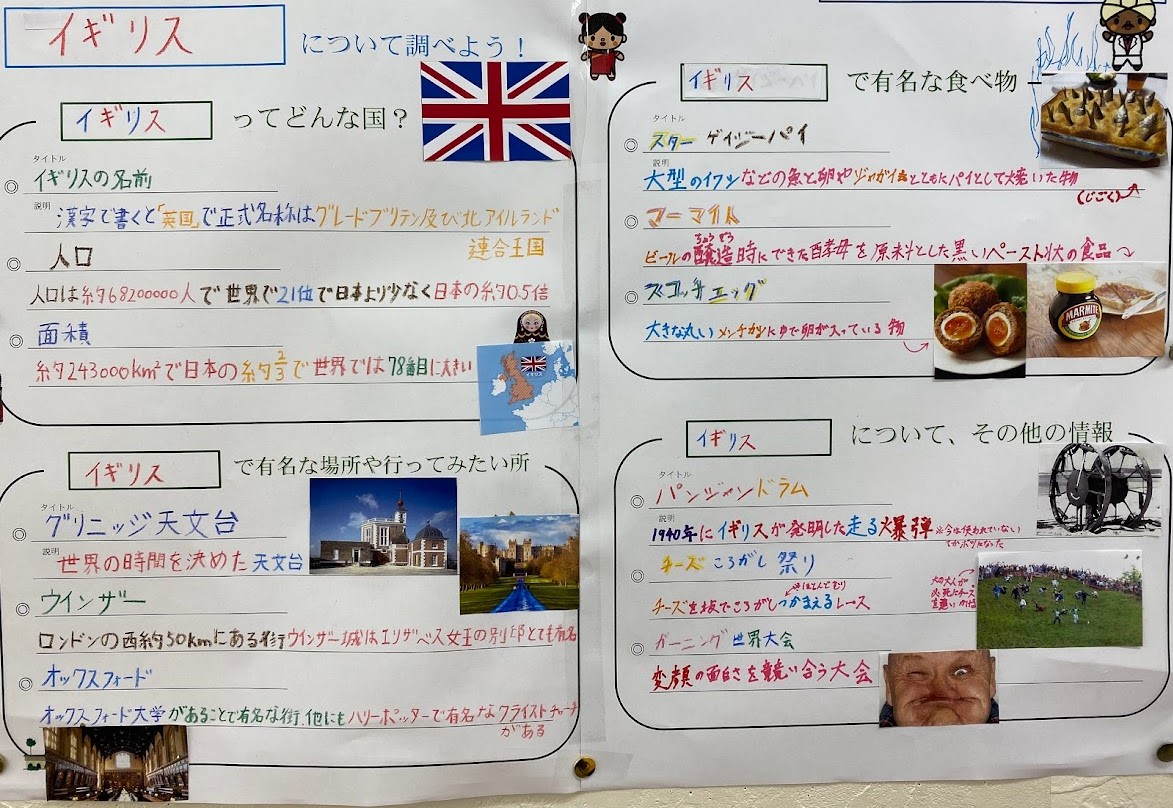 イギリス について調べよう！
イギリス ってどんな国？
タイトル
イギリスの名前
説明
漢字で書くと「英国」で正式名称はグレートブリテン及び北アイルランド
連合王国
人口
人口は約68200000人で世界で21位で日本より少なく日本の約0.5倍
面積
約243000km²で日本の約2/3で世界では78番目に大きい
イギリス
イギリス で有名な場所や行ってみたい所
タイトル
グリニッジ天文台
説明
世界の時間を決めた天文台
ウインザー
ロンドンの西約50kmにある街ウインザー城はエリザベス女王の別邸とても有名
オックスフォード
オックスフォード大学があることで有名な街、他にもハリーポッターで有名なクライストチャーチ
がある
イギリス で有名な食べ物
タイトル
スターゲイジーパイ
説明
大型のイワシなどの魚と卵やジャガイモとともにパイとして焼いた物
(じごく)
マーマイト
じょうぞう
ビールの醸造時にできた酵母を原料とした黒いペースト状の食品
スコッチエッグ
大きな丸いメンチカツにゆで卵が入っている物
MARMITE
イギリス について、その他の情報
タイトル
パンジャンドラム
説明
1940年にイギリスが発明した走る爆弾 ※今は使われていない
てかボツになった
チーズころがし祭り
※ほとんどむり
チーズを坂でころがしつかまえるレース
大の大人が
必死にチーズ
を追いかける
ガーニング世界大会
変顔の面白さを競い合う大会